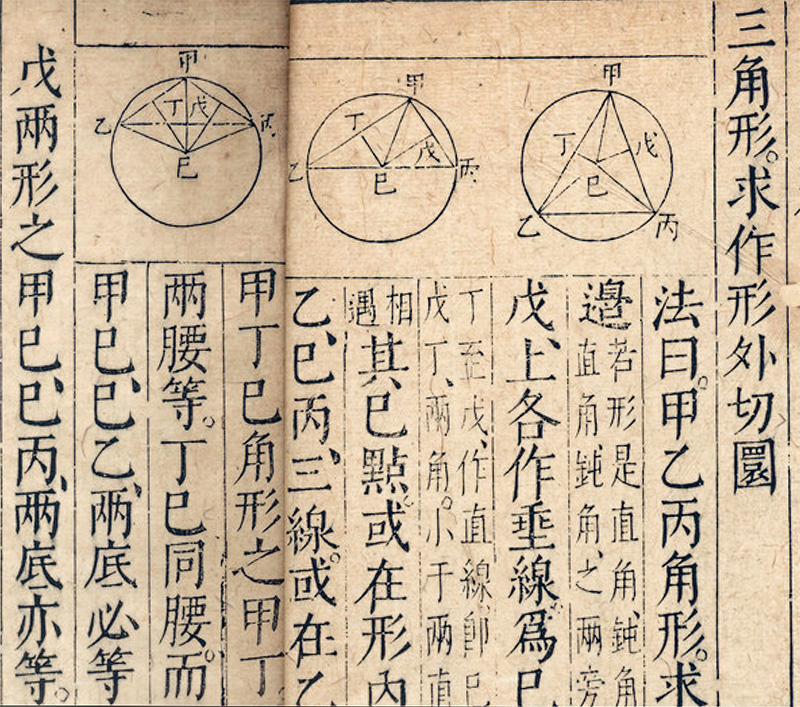 三角形。求作形外切圜
法曰。甲乙丙角形。求
邊若形是直角、鈍角
直角、鈍角、之兩旁
戊、上各作垂線爲己
丁至戊、作直線、卽己
戊丁、兩角。小于兩直
相遇其己點。或在形內
乙、己丙、三線。或在乙
甲丁己角形之甲丁
兩腰等。丁己同腰。而
甲己、己乙、兩底必等
戊兩形之甲己、己丙、兩底亦等。
甲
丁
戊
己
乙
丙
甲
丁
戊
己
乙
丙
甲
丁
戊
乙
丙
己